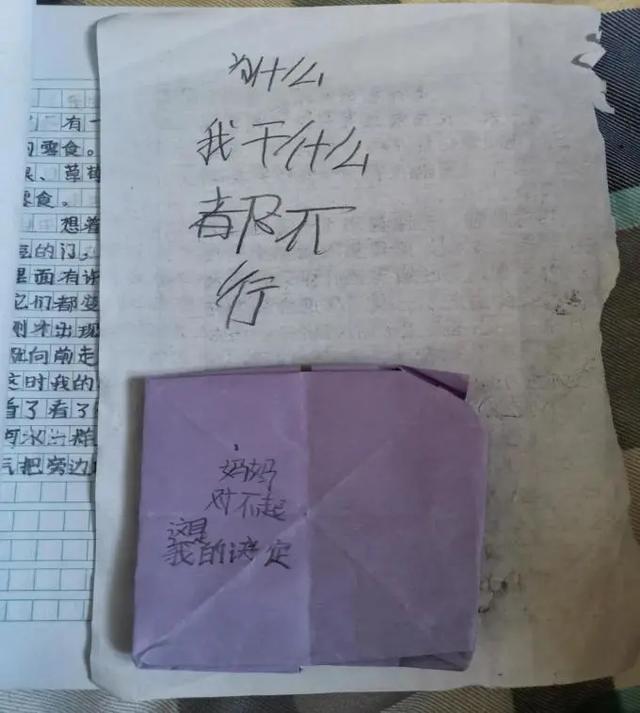 为什么
我干什么
都不
行
妈妈
对不起
这是
我的决定
有一
零食。
、草莓
零食。
想着
的门,
里面有许
它们都变
刚才出现
向前走
这时我的
看了看了
把旁边